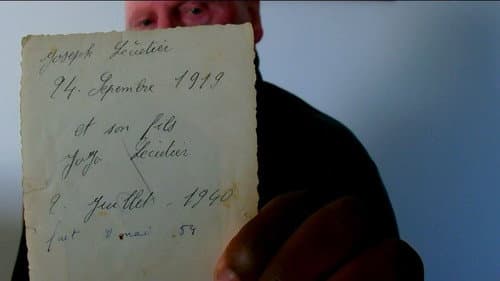 Joseph Lécutier
24. Sepembre 1919
et son fils
JoJo Lécutier
9. Juillet - 1940
fait 8 mai 54